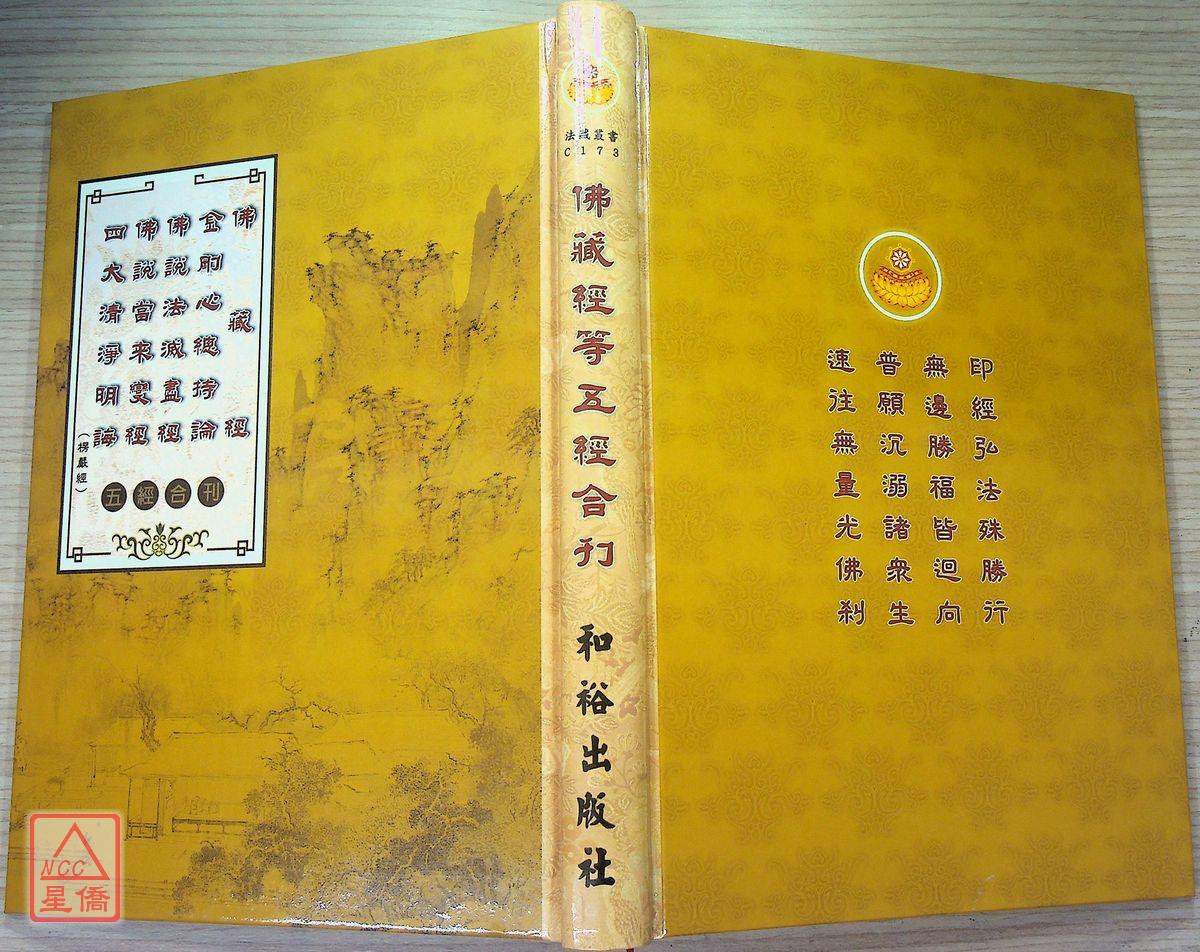 佛藏經
金剛心總持論
佛說法滅盡經
佛說當來變經
四大清淨明誨
(楞嚴經)
五經合刊
法藏叢書
C173
佛藏經等五經合刊
和裕出版社
印經弘法殊勝行
無邊勝福皆迴向
普願沉溺諸衆生
速往無量光佛剎
NCC
星僑